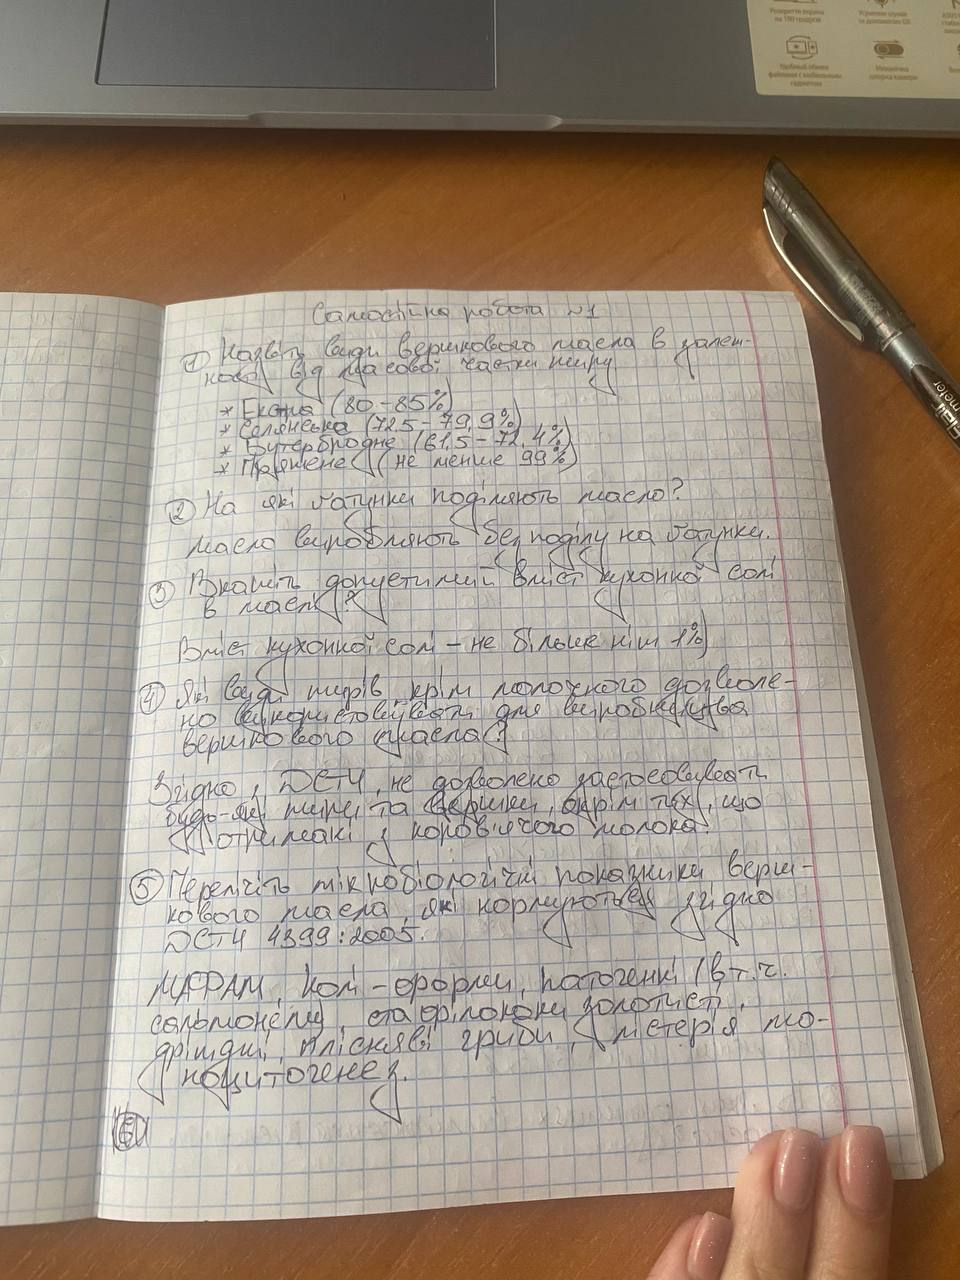 Розкриття екрана
на 180 градусів
Усунення шумів
за допомогою ШІ
Зручний обмін
файлами с мобільним
гаджетом
Механічна
шторка камери
Flair
meter
Самостійна робота №1
① Назвіть види вершкового масла в залеж-
ності від масової частки жиру
* Екстра (80-85%)
* Селянська (72,5-79,9%)
* Бутербродне (61,5-72,4%)
* Пряжене (не менше 99%)
② На які ґатунки поділяють масло?
Масло виробляють без поділу на ґатунки.
③ Вкажіть допустимий вміст кухонної солі
в маслі?
Вміст кухонної солі - не більше ніж 1%)
④ Які види жирів, крім молочного дозволе-
но використовувати для виробництва
вершкового масла?
Згідно, ДСТУ, не дозволено застосовувати
будь-які жири та вершки, окрім тих, що
отримані з коров'ячого молока.
⑤ Перелічіть мікробіологічні показники верш-
кового масла, які нормуються згідно
ДСТУ 4399:2005.
МАФАМ, колі-форми, патогенні (в т.ч.
сальмонели), стафілококи золотисті,
дріжджі, плісняві гриби, лістерія мо-
ноцитогенез.